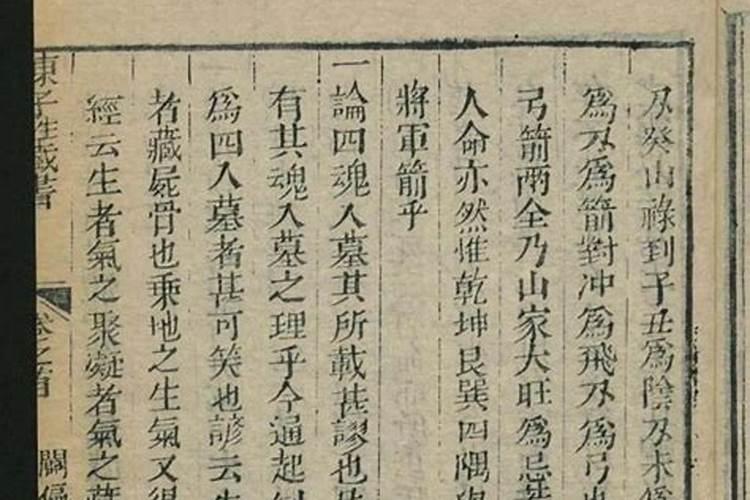 刄癸山祿到子丑爲陰刄未爲
爲刄爲箭對冲爲飛刄爲弓
弓箭兩全乃山家大旺爲忌
人命亦然惟乾坤艮巽四隅
將軍箭乎
一論四魂入墓其所載甚謬也
有其魂入墓之理乎今通起
爲四入墓者甚可笑也諺云生
者藏屍骨也乗地之生氣又得
經云生者氣之聚凝者氣之
卷之首 闢僞